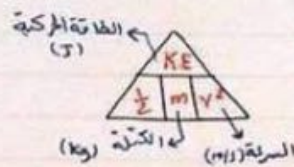 الطاقة الحركية
(J)
KE
½ m v²
(kg) الكتلة
السرعة (m/s)